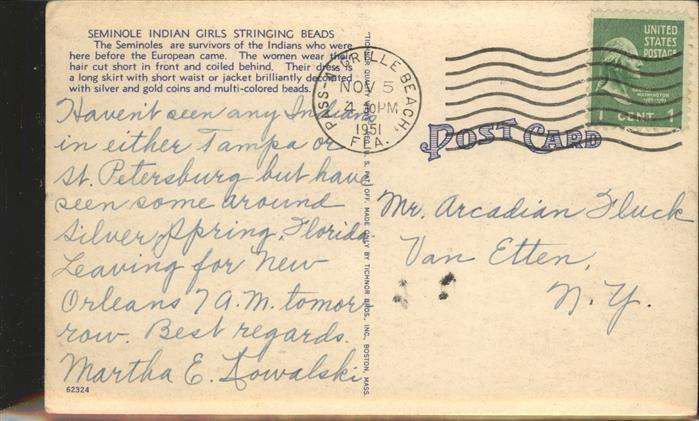 SEMINOLE INDIAN GIRLS STRINGING BEADS
The Seminoles are survivors of the Indians who were
here before the European came. The women wear their
hair cut short in front and coiled behind. Their dress is
a long skirt with short waist or jacket brilliantly decorated
with silver and gold coins and multi-colored beads.
Haven't seen any Indians
in either Tampa or
St. Petersburg but have
seen some around
Silver Spring, Florida
Leaving for New
Orleans 7 A.M. tomor-
row. Best regards.
Martha E. Kowalski
62324
PASS-A-GRILLE BEACH,
NOV 5
PM
1951
FLA.
UNITED
STATES
POSTAGE
WASHINGTON
1 CENT 1
POST CARD
MADE ONLY BY TICHNOR BROS., INC. BOSTON, MASS.
Mr. Arcadian Fluck
Van Etten,
N.Y.